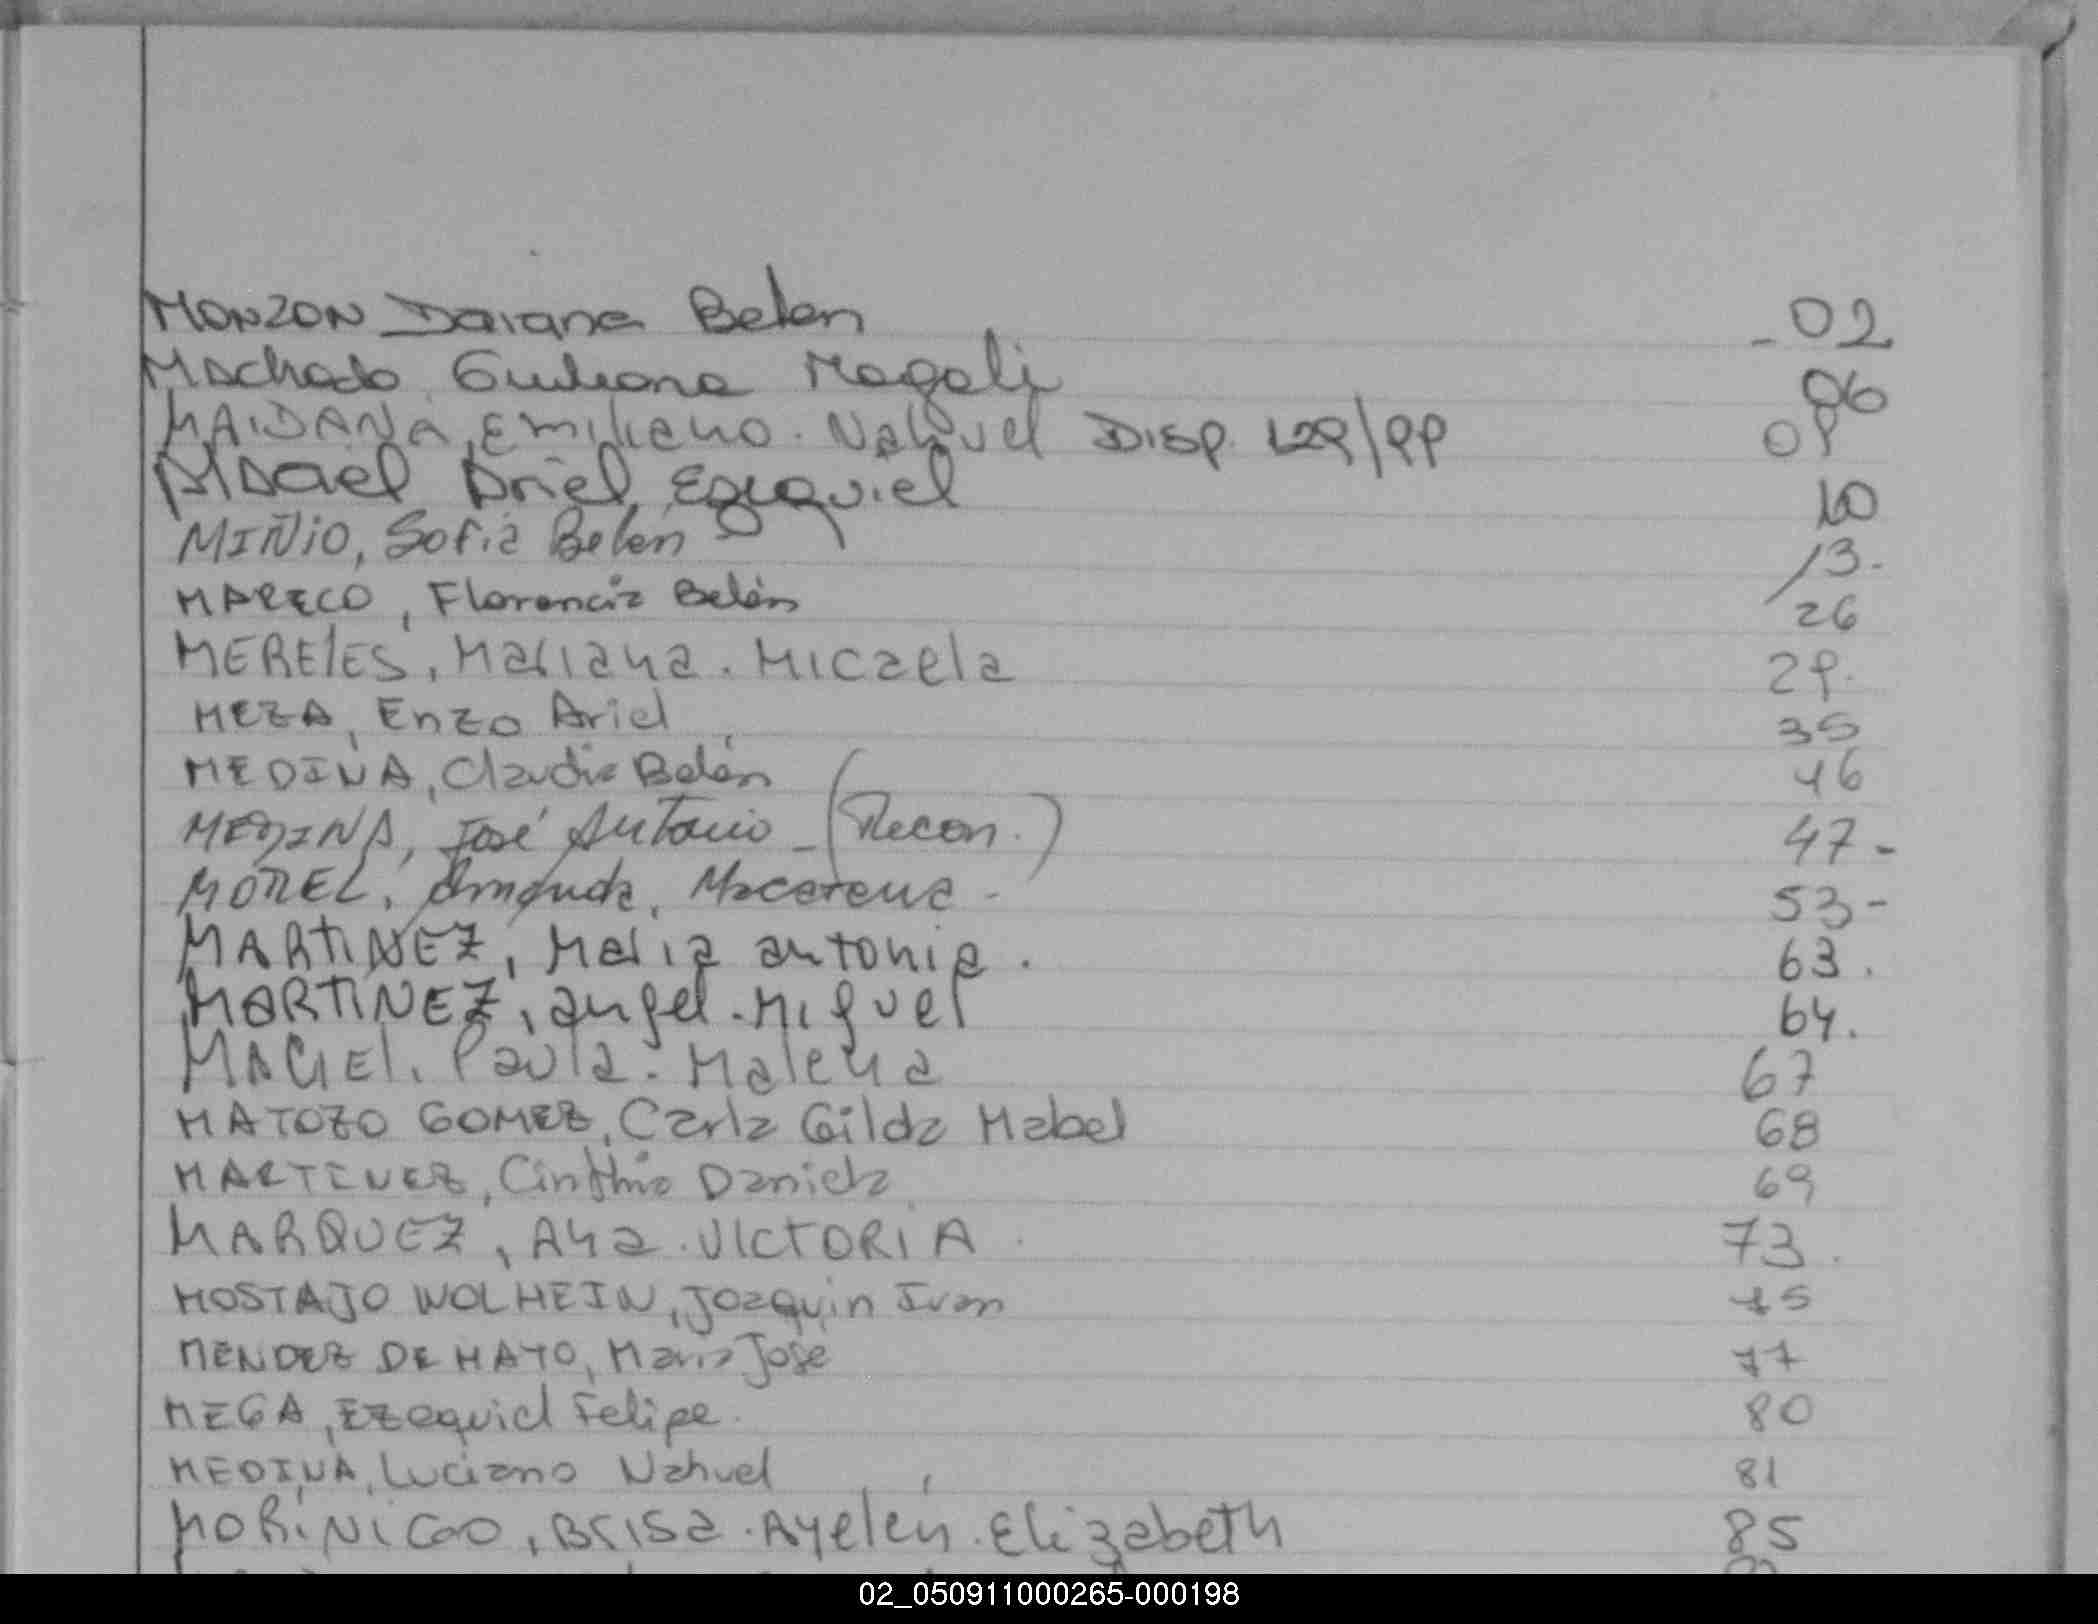 MONZON Daiana Belen - 02
Machado Giuliana Magali 06
MAIDANA, Emiliano. Nahuel Disp. 129/99 09
Misael Ariel Ezequiel 10
MIÑIO, Sofia Belén 13-
MARECO, Florencia Belén 26
MERELES, Mariana. Micaela 29.
MEZA, Enzo Ariel 35
MEDINA, Claudia Belén 46
MEDINA, José Antonio - (Recon.) 47-
MOREL, Amanda, Macarena - 53-
MARTINEZ, Maria antonia. 63.
MARTINEZ, angel. Miguel 64.
MACIEL. Paula. Malena 67
MATOZO GOMEZ, Carla Gilda Mabel 68
MARTINEZ, Cinthia Daniela 69
MARQUEZ, Ana. VICTORIA. 73.
MOSTAJO WOLHEIN, Joaquin Ivan 75
MENDEZ DE MAYO, Maria José 77
MEGA, Ezequiel Felipe. 80
MEDINA, Luciano Nahuel 81
MORINIGO, Brisa. Ayelén. Elizabeth 85
02_050911000265-000198